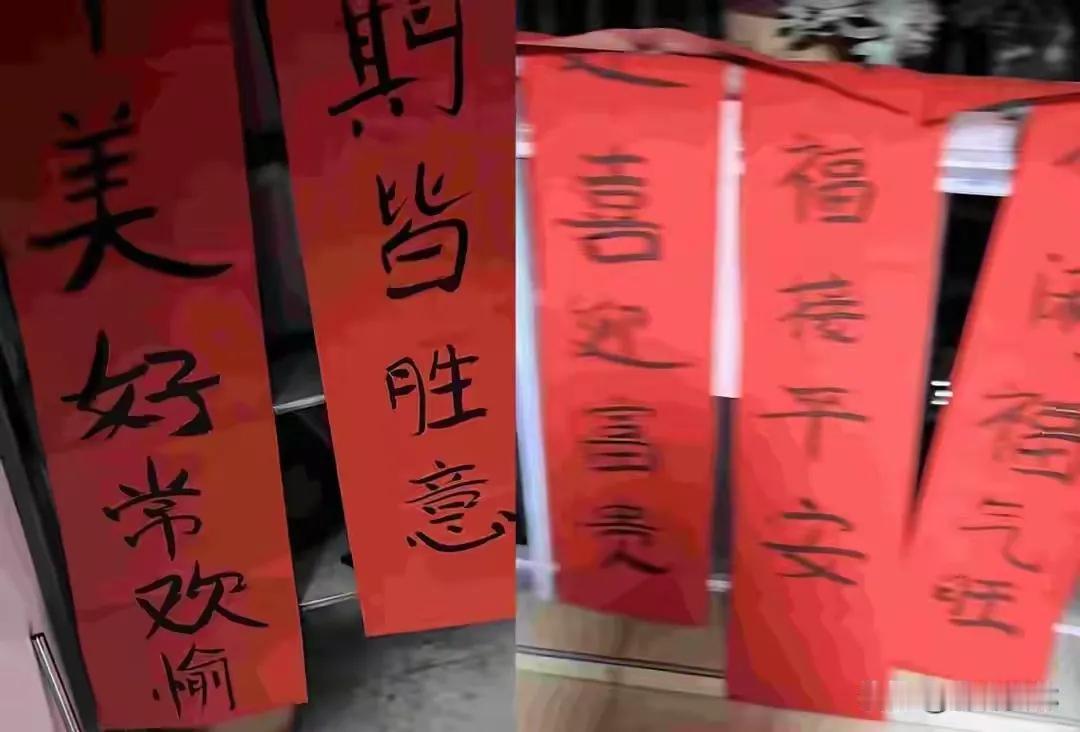 美好常欢愉
期皆胜意
喜迎富贵
福接平安
福气旺